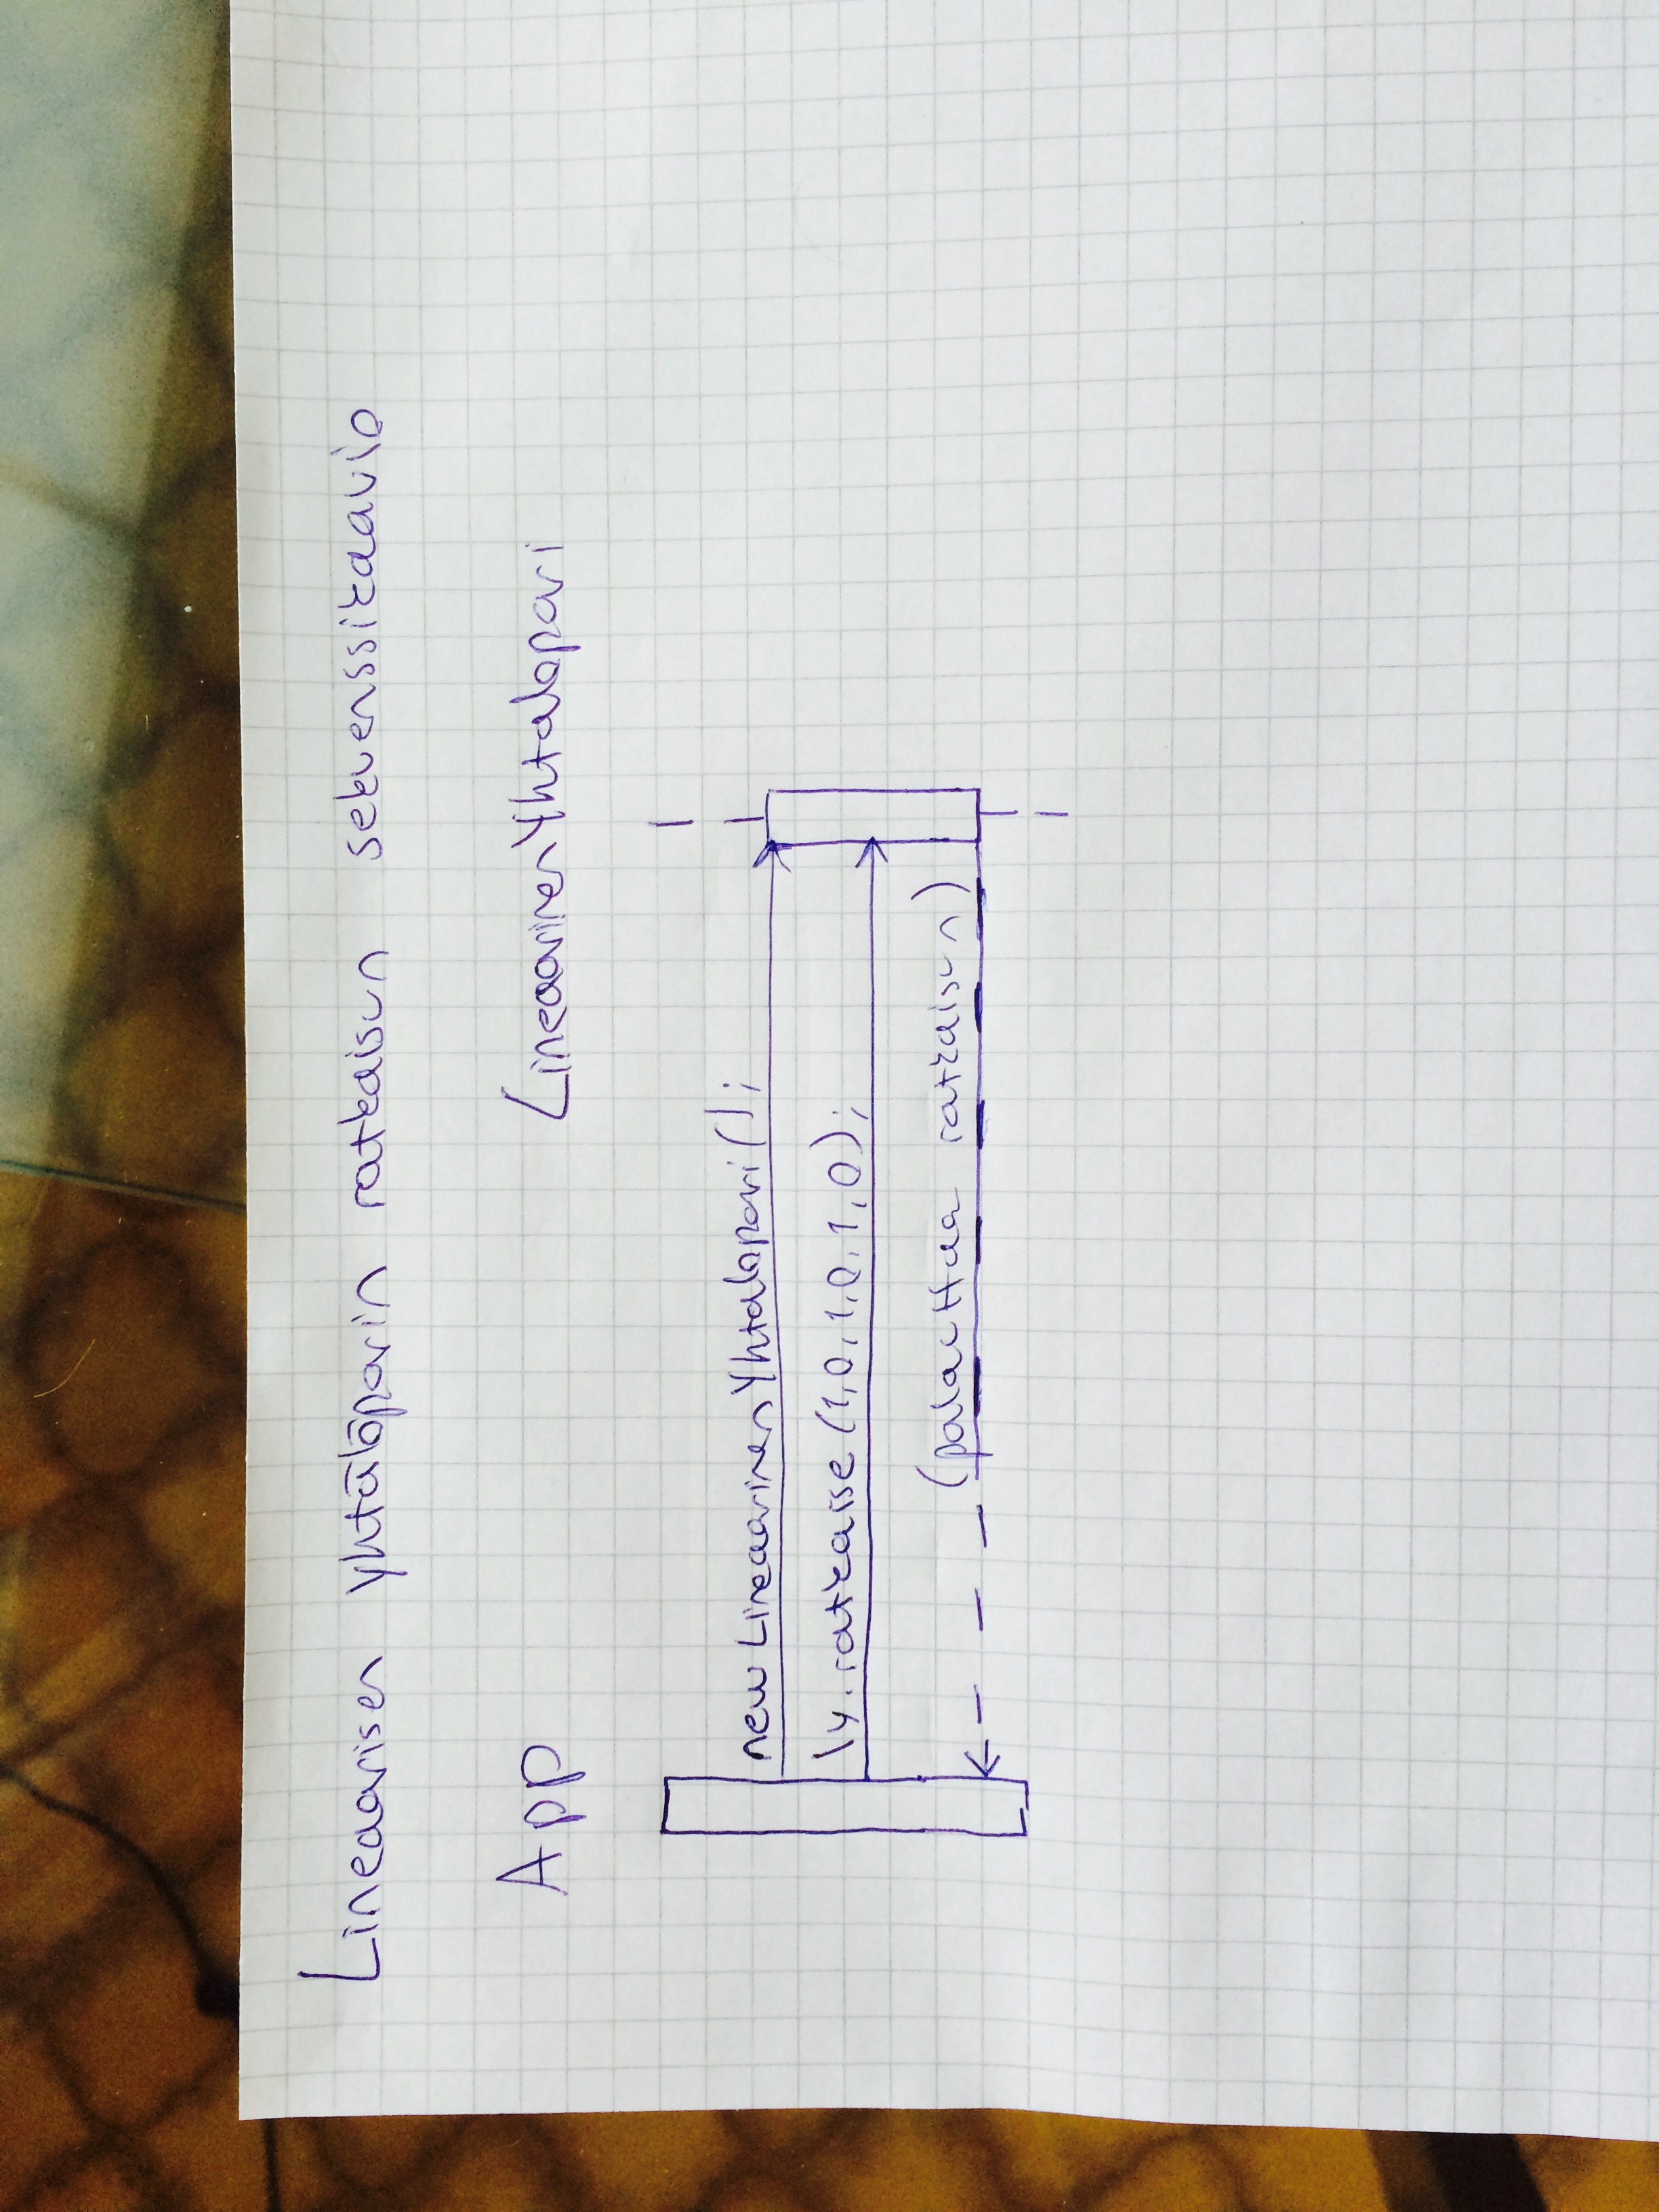 Lineaarisen yhtälöparin ratkaisun sekvenssikaavio
App LineaarinenYhtalopari
new LineaarinenYhtalopari();
ly.ratkaise(1,0,1,0,1,0);
(palauttaa ratkaisun)